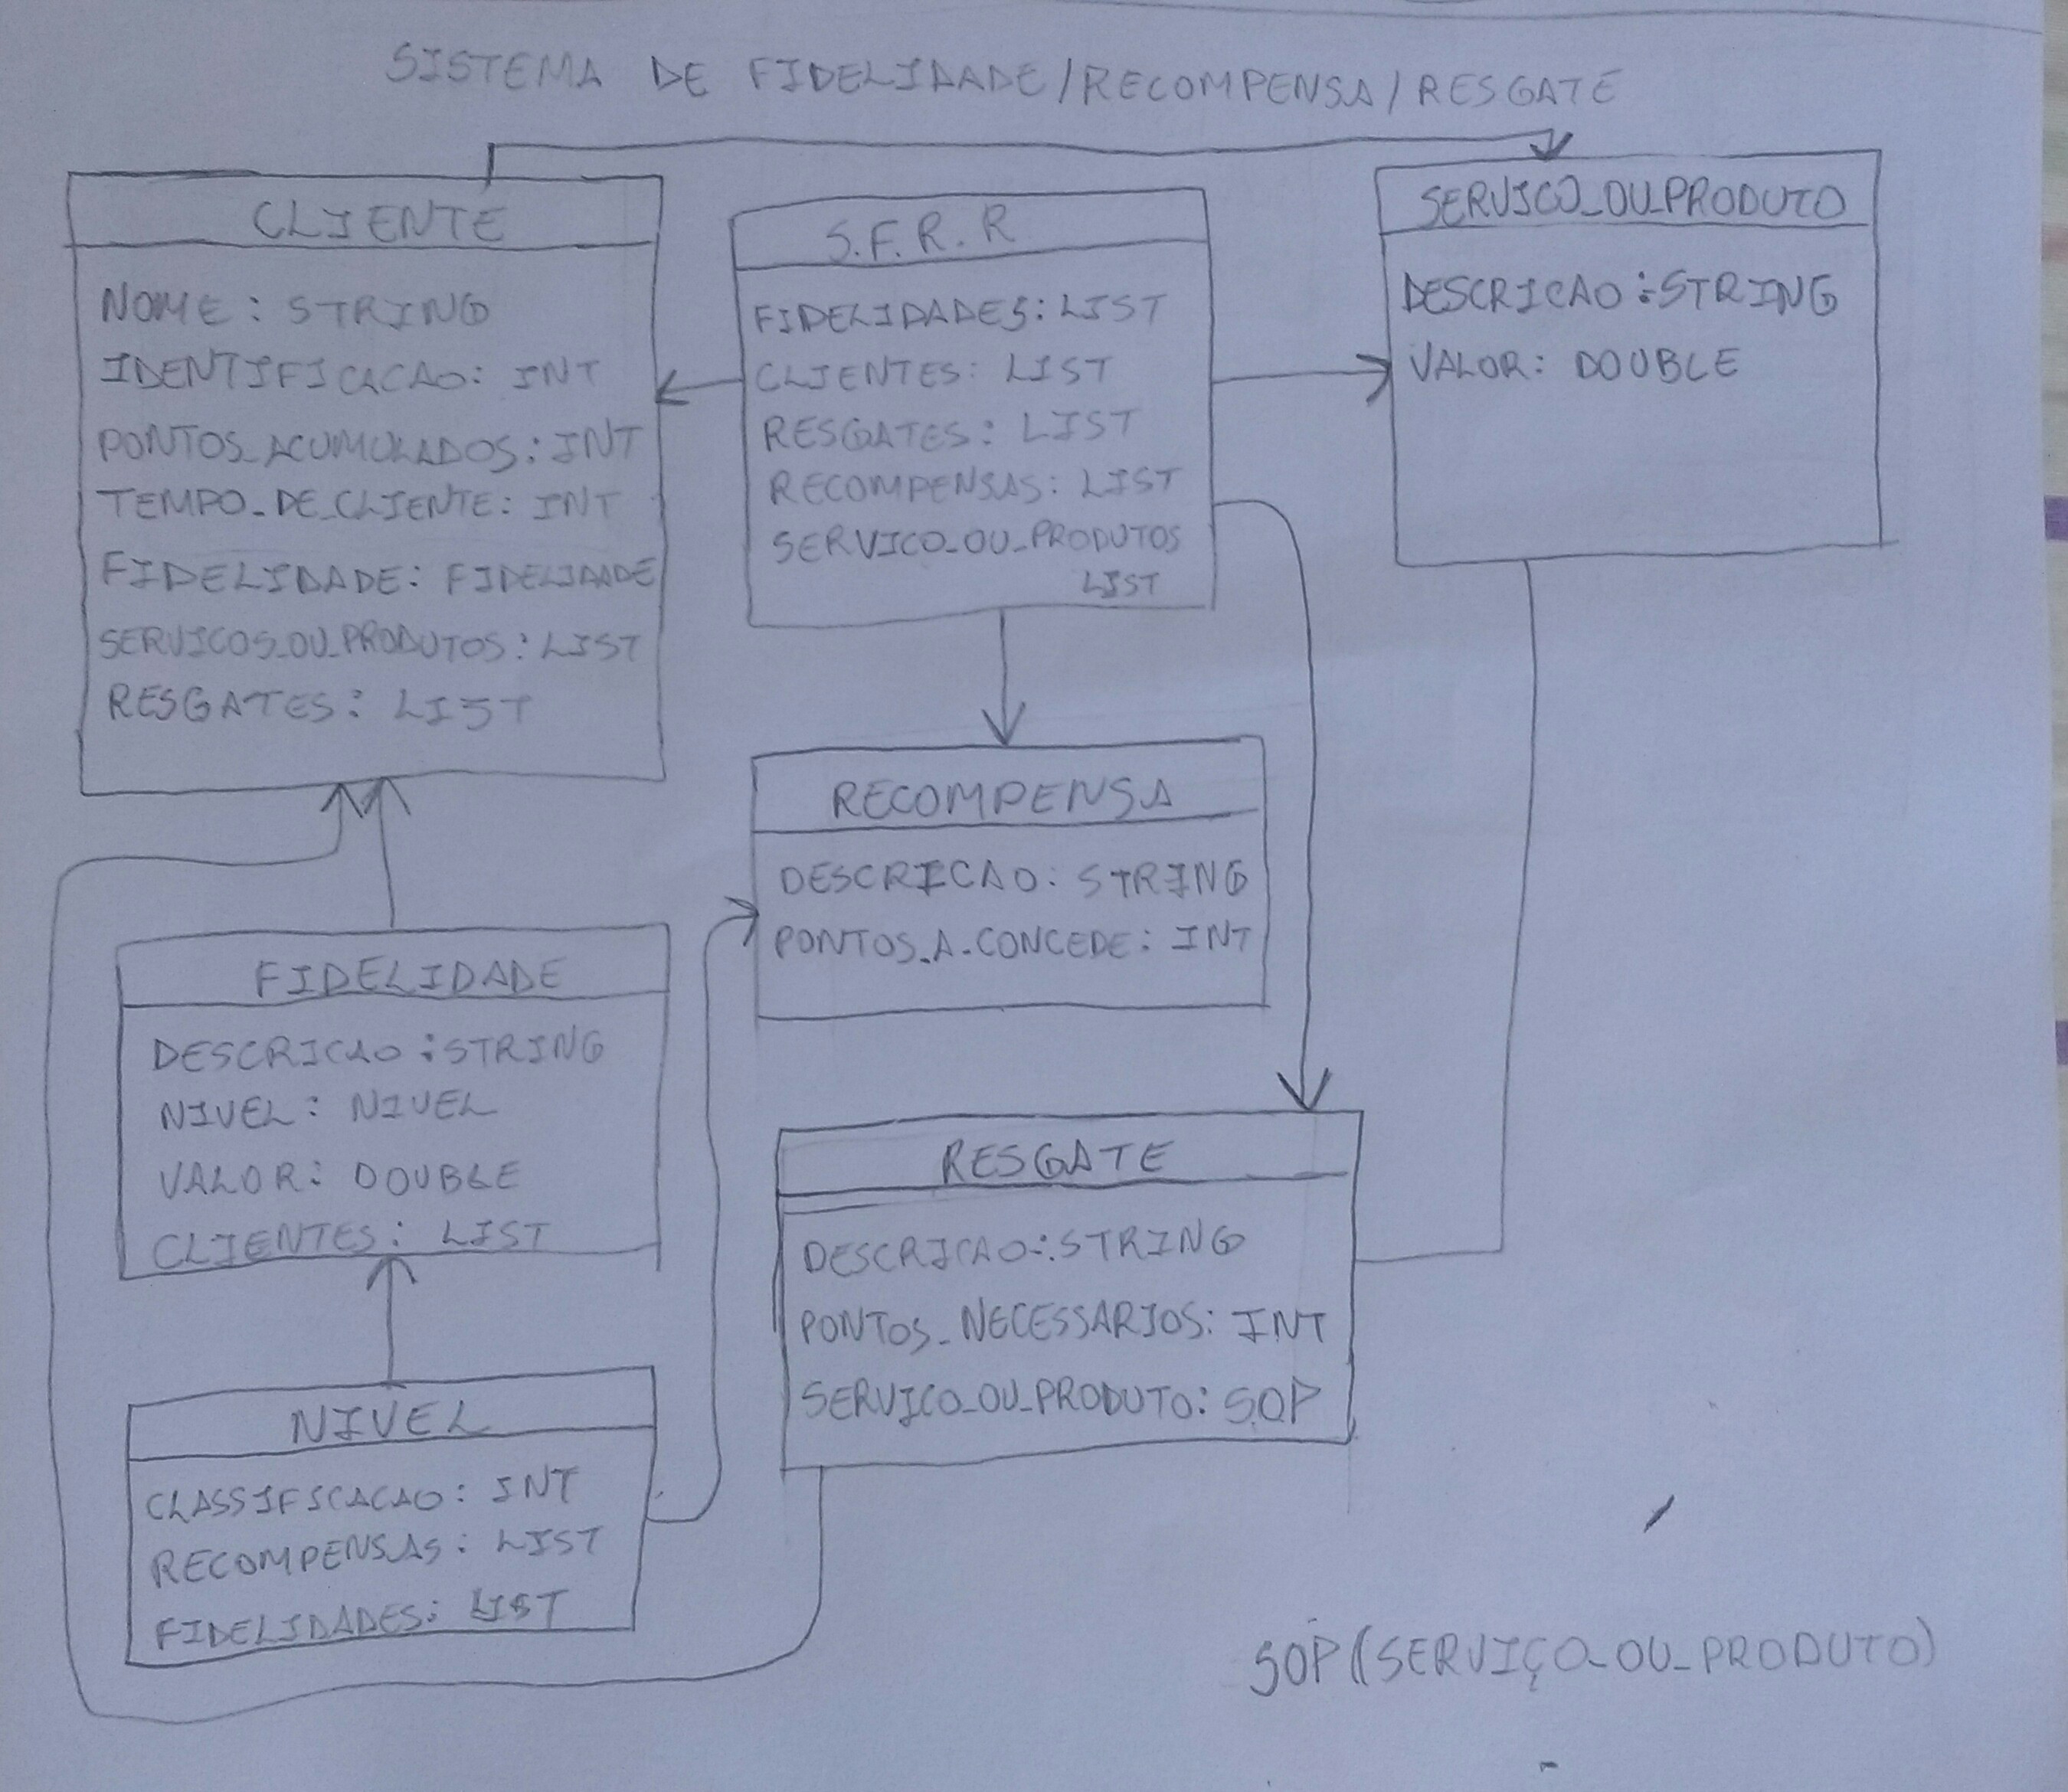 SISTEMA DE FIDELIDADE/RECOMPENSA/RESGATE
CLIENTE
NOME: STRING
IDENTIFICACAO: INT
PONTOS_ACUMULADOS: INT
TEMPO_DE_CLIENTE: INT
FIDELIDADE: FIDELIDADE
SERVICOS_OU_PRODUTOS: LIST
RESGATES: LIST
S.F.R.R
FIDELIDADES: LIST
CLIENTES: LIST
RESGATES: LIST
RECOMPENSAS: LIST
SERVICO_OU_PRODUTOS
LIST
SERVICO_OU_PRODUTO
DESCRICAO: STRING
VALOR: DOUBLE
RECOMPENSA
DESCRICAO: STRING
PONTOS_A_CONCEDE: INT
FIDELIDADE
DESCRICAO: STRING
NIVEL: NIVEL
VALOR: DOUBLE
CLIENTES: LIST
RESGATE
DESCRICAO: STRING
PONTOS_NECESSARIOS: INT
SERVICO_OU_PRODUTO: SOP
NIVEL
CLASSIFICACAO: INT
RECOMPENSAS: LIST
FIDELIDADES: LIST
SOP (SERVIÇO_OU_PRODUTO)